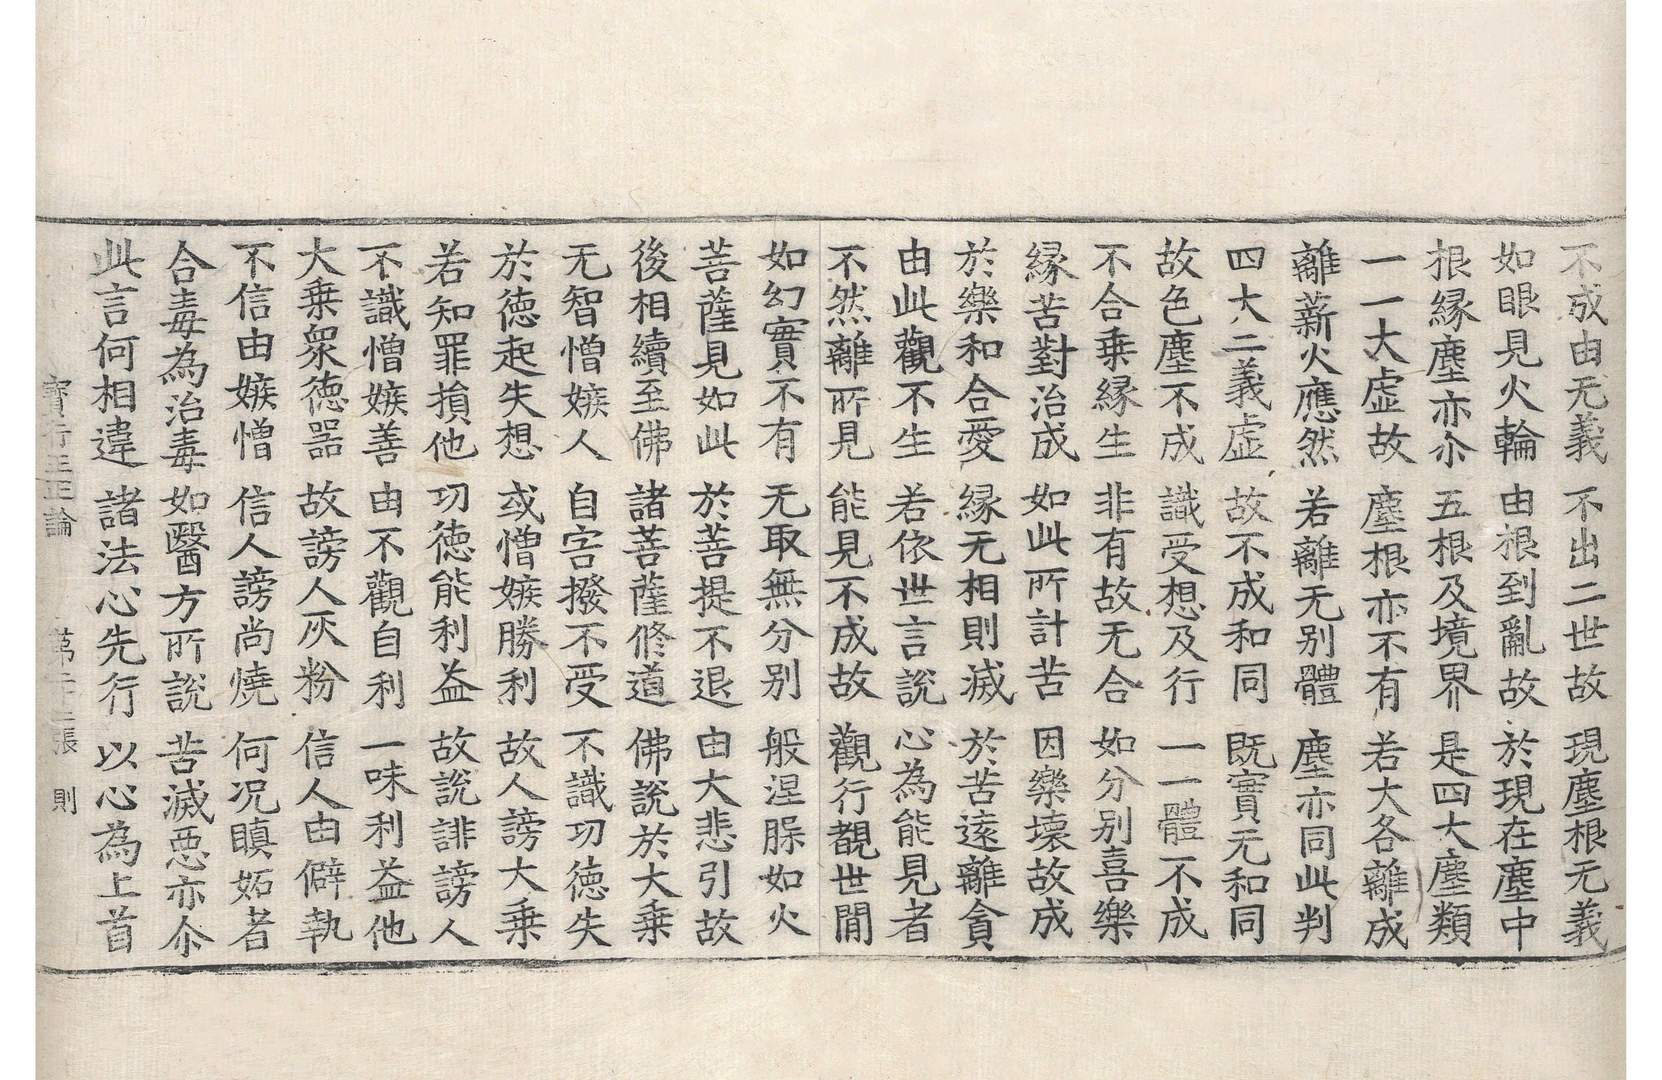 不成由无義　不出二世故　現塵根无義
如眼見火輪　由根到亂故　於現在塵中
根縁塵亦尒　五根及境界　是四大塵類
一一大虚故　塵根亦不有　若大各離成
離薪火應然　若離无別體　塵亦同此判
四大二義虚　故不成和同　既實无和同
故色塵不成　識受想及行　一一體不成
不合乗縁生　非有故无合　如分別喜樂
縁苦對治成　如此所計苦　因樂壞故成
於樂和合愛　縁无相則滅　於苦遠離貪
由此觀不生　若依世言說　心為能見者
不然離所見　能見不成故　觀行覩世間
如幻實不有　无取無分別　般涅脲如火
菩薩見如此　於菩提不退　由大悲引故
後相續至佛　諸菩薩修道　佛說於大乗
无智憎嫉人　自害撥不受　不識功徳失
於徳起失想　或憎嫉勝利　故人謗大乗
若知罪損他　功徳能利益　故說誹謗人
不識憎嫉善　由不觀自利　一味利益他
大乗衆徳器　故謗人灰粉　信人由僻執
不信由嫉憎　信人謗尚燒　何況瞋妬者
合毒為治毒　如醫方所說　苦滅惡亦尒
此言何相違　諸法心先行　以心為上首
寳行王正論　第二十二張　則